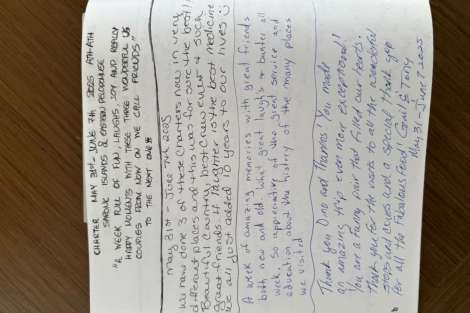 CHARTER MAY 31ST - JUNE 7th 2025 ATH-ATH
SARONIC ISLANDS & EASTERN PELOPONNESE
"A WEEK FULL OF FUN, LAUGHS, JOY AND REALLY
HAPPY MOMENTS WITH THESE THREE WONDERFUL US
COUPLES FROM NOW ON WE CALL FRIENDS"
TO THE NEXT ONE!!
May 31st June 7th 2025
We have done 3 of these charters now in very
different places and this was for sure the best!!
Beautiful Country, best Crew ever & such
great friends if laughter is the best medicine
We all just added 10 years to our lives
A week of amazing memories with great friends
both new and old. What great laughs & banter all
week. So appreciative of the great service and
education about the history of the many places
we visited
Thank you Dino and Thanos! You made
an amazing trip even more exceptional!
You are a funny pair that filled our hearts.
Thank you for the visits to all the wonderful
stops and coves and a special thank you
for all the fabulous food! Gail & Tony
May 31 - June 7 2025